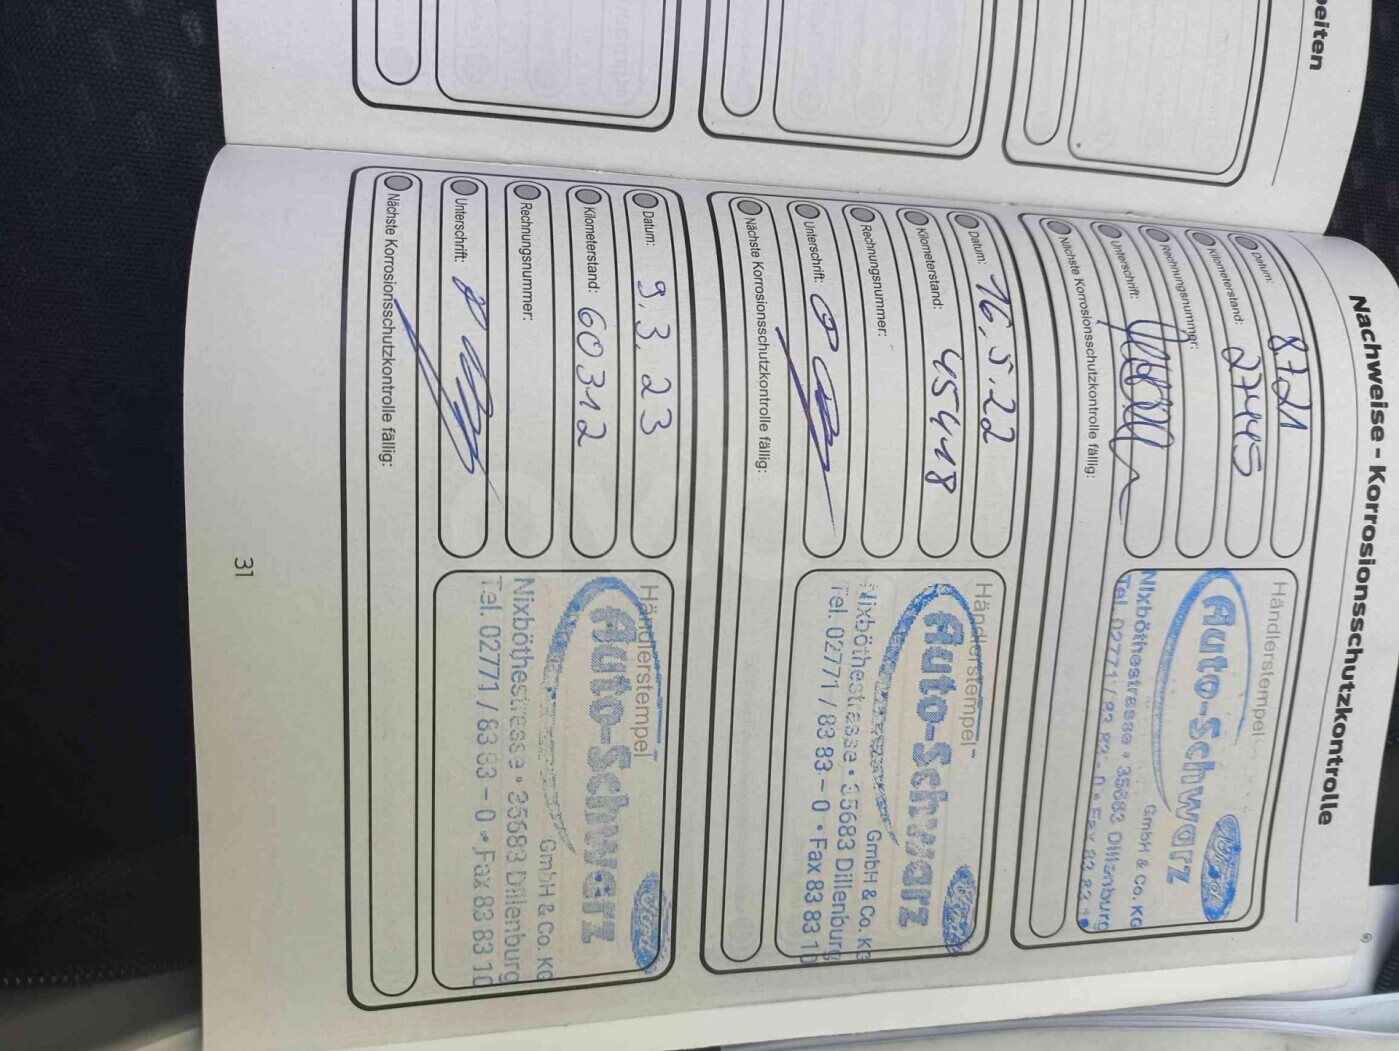 beiten
Nachweise - Korrosionsschutzkontrolle
Datum: 8.7.21
Kilometerstand: 27445
Rechnungsnummer:
Unterschrift:
Nächste Korrosionsschutzkontrolle fällig:
Händlerstempel
Auto-Schwarz
Ford
GmbH & Co. KG
Nixböthestrasse • 35683 Dillenburg
Tel. 02771 / 83 83 - 0 • Fax 83 83 10
Datum: 16.5.22
Kilometerstand: 45418
Rechnungsnummer:
Unterschrift:
Nächste Korrosionsschutzkontrolle fällig:
Händlerstempel
Auto-Schwarz
Ford
GmbH & Co. KG
Nixböthestrasse • 35683 Dillenburg
Tel. 02771 / 83 83 - 0 • Fax 83 83 10
Datum: 9.3.23
Kilometerstand: 60312
Rechnungsnummer:
Unterschrift:
Nächste Korrosionsschutzkontrolle fällig:
Händlerstempel
Auto-Schwarz
Ford
GmbH & Co. KG
Nixböthestrasse • 35683 Dillenburg
Tel. 02771 / 83 83 - 0 • Fax 83 83 10
31